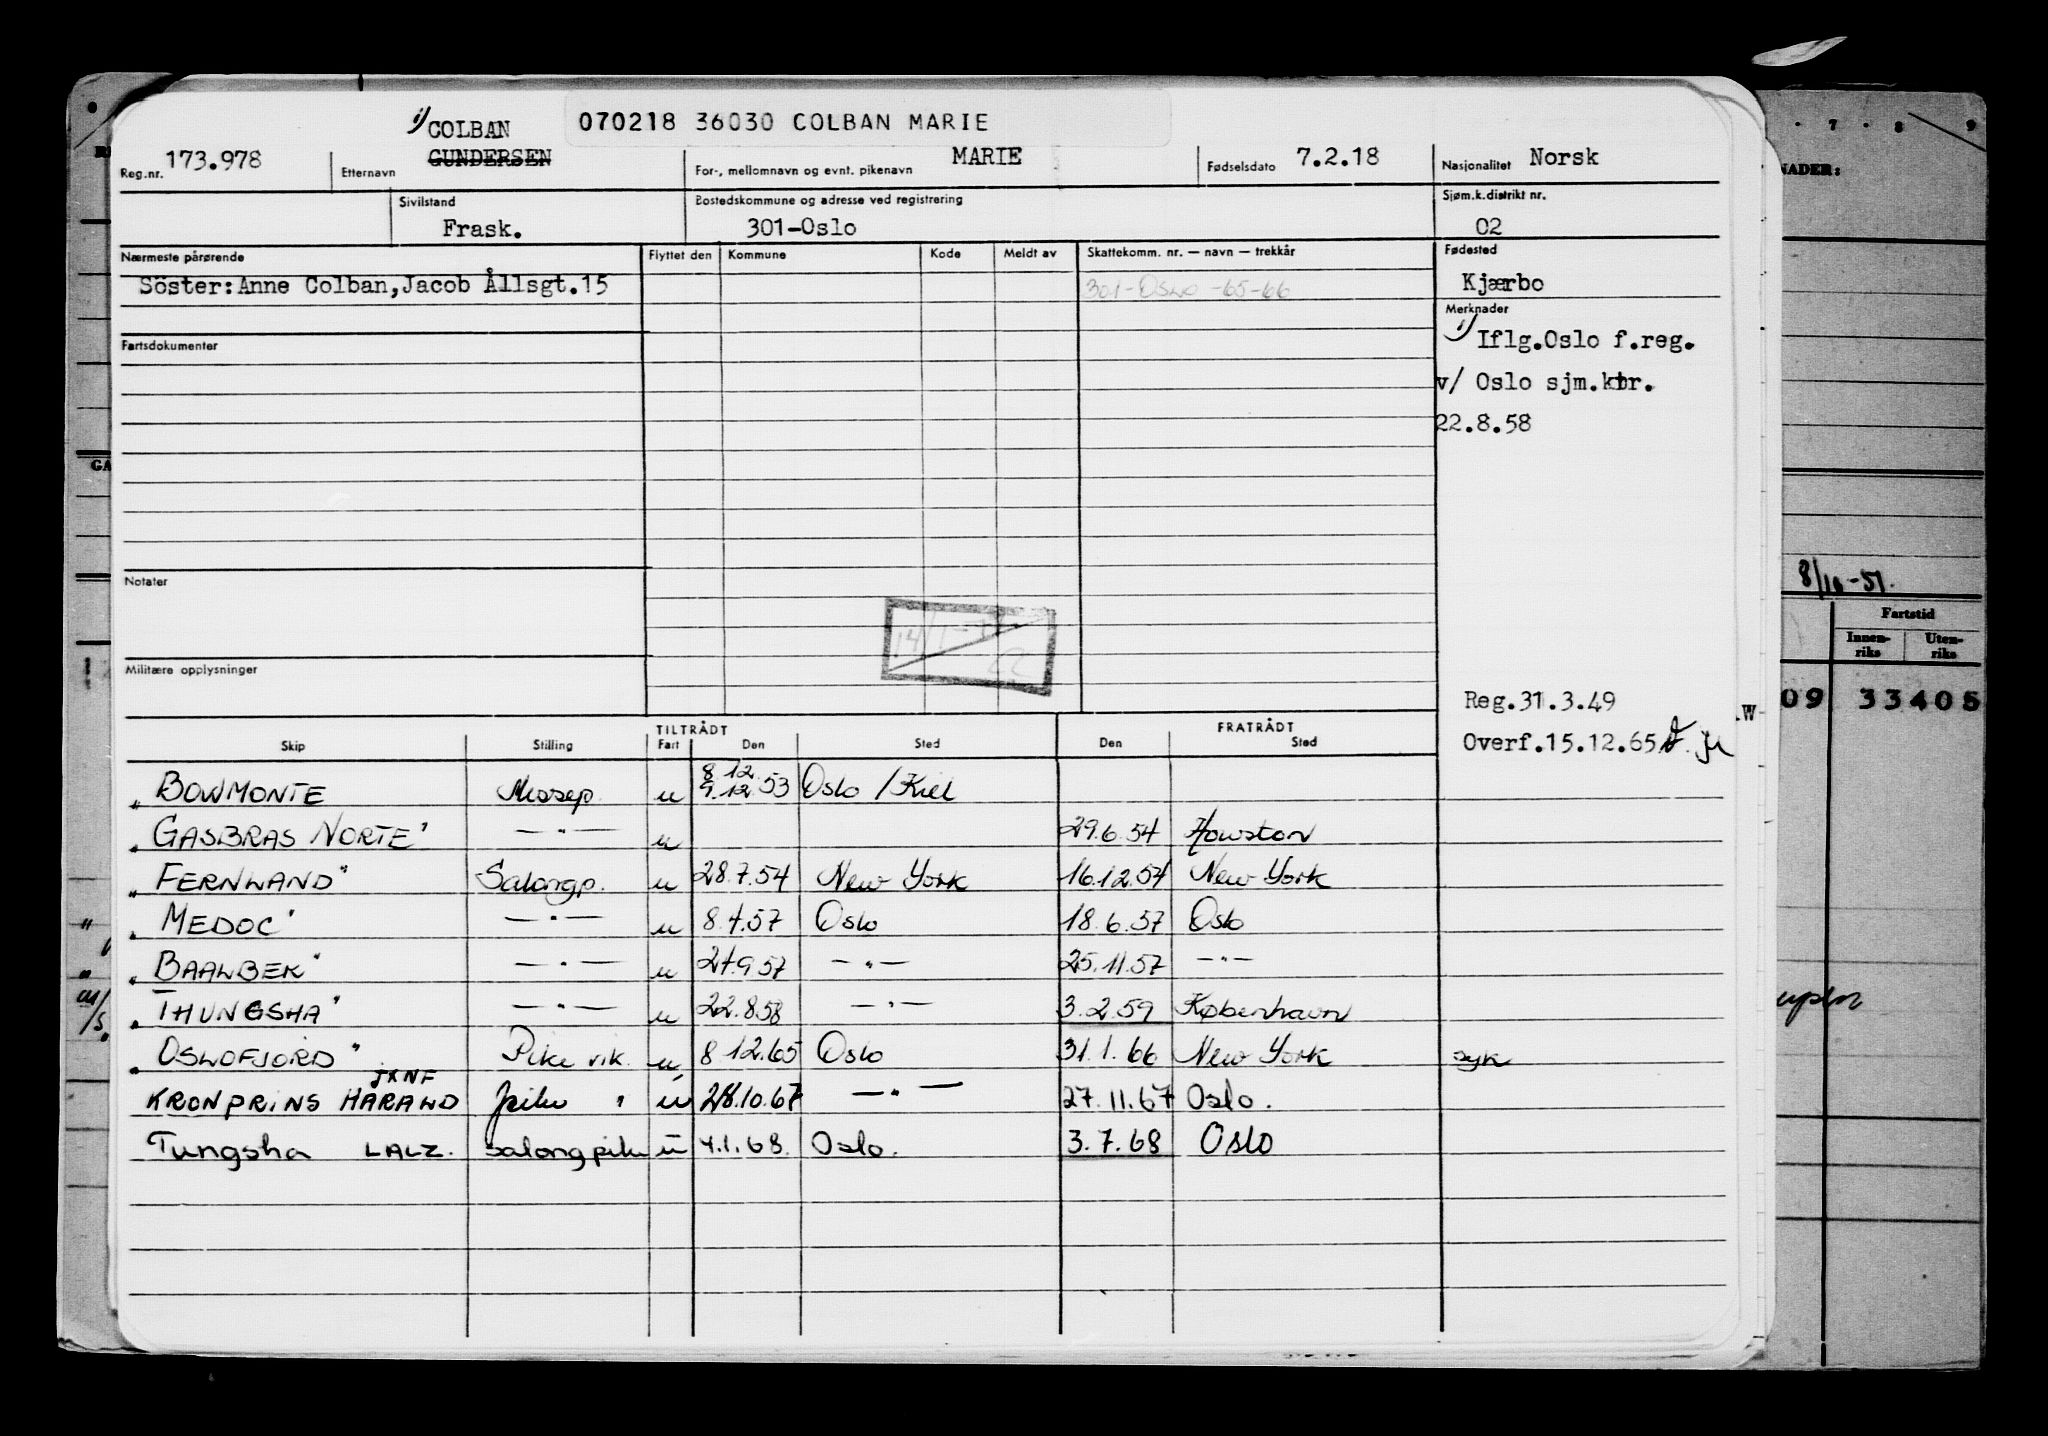 070218 36030 COLBAN MARIE
1) COLBAN
173.978 GUNDERSEN MARIE 7.2.18 Norsk
Reg.nr. Etternavn For-, mellomnavn og evnt. pikenavn Fødselsdato Nasjonalitet
Sivilstand Bostedskommune og adresse ved registrering Sjøm.k.distrikt nr.
Frask. 301-Oslo 02
Nærmeste pårørende Flyttet den Kommune Kode Meldt av Skattekomm. nr. — navn — trekkår Fødested
Söster:Anne Colban,Jacob Ållsgt.15 301-Oslo -65-66 Kjærbo
Merknader
Fartsdokumenter 1) Iflg.Oslo f.reg.
v/ Oslo sjm.ktr.
22.8.58
Notater
Militære opplysninger
Reg.31.3.49
Overf.15.12.65
TILTRÅDT FRATRÅDT
Skip Stilling Fart Den Sted Den Sted
8.12
„ BOWMONTE Messep. u 9.12.53 Oslo / Kiel
„ GASBRAS NORTE" —"— u 29.6.54 Houston
„ FERNLAND" Salongp. u 28.7.54 New York 16.12.54 New York
„ MEDOC" —"— u 8.4.57 Oslo 18.6.57 Oslo
„ BAALBEK" —"— u 24.9.57 —"— 25.11.57 —"—
„ THUNGSHA" —"— u 22.8.58 —"— 3.2.59 København
„ OSLOFJORD" Pike vik. u 8.12.65 Oslo 31.1.66 New York syk
JXNF
KRONPRINS HARALD pike " u 28.10.67 —"— 27.11.67 Oslo.
Tungsha LALZ. salongpike u 4.1.68. Oslo. 3.7.68 Oslo
7 8 9
NADER:
8/10-51.
Fartstid
Innen-riks Uten-riks
09 33405
W
GA